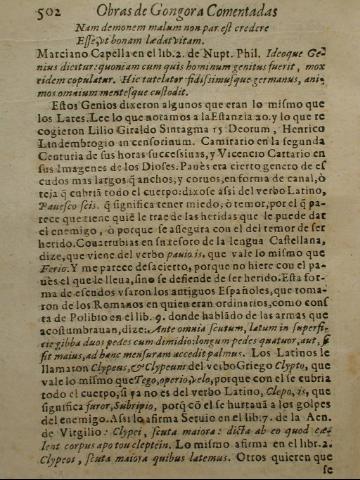 502 Obras de Gongora Comentadas
Nam demonem malum non par est credere
Esse, vt bonam lædat vitam.
Marciano Capella en el lib. 2. de Nupt. Phil. Ideoque Ge-
nius dicitur: quoniam cum quis hominum genitus fuerit, mox
eidem copulatur. Hic tutelator fidissimusque germanus, ani-
mos omnium mentesque custodit.
Estos Genios dixeron algunos que eran lo mismo que
los Lares. Lee lo que notamos a la Estanzia 20. y lo que re
cogieron Lilio Giraldo Sintagma 15 Deorum, Henrico
Lindembrogio in censorinum. Camirario en la segunda
Centuria de sus horas successiuas, y Vicencio Cartario en
sus Imagenes de los Dioses. Paues era cierto genero de es
cudos mas largos q̃ anchos, y coruos, en forma de canal, ò
teja q̃ cubria todo el cuerpo: dixose assi del verbo Latino,
Pauesco scis. q̃ significa tener miedo, ò temor, por el q̃ pa-
rece que tiene quiẽ le trae de las heridas que le puede dar
el enemigo, ò porque se assegura con el del temor de ser
herido. Couarrubias en su tesoro de la lengua Castellana,
dize, que viene del verbo pauio.is, que vale lo mismo que
Ferio. Y me parece desacierto, porque no hiere con el pa-
ues el que le lleua, sino se defiende de ser herido. Esta for-
ma de escudos vsaron los antiguos Españoles, que toma-
ron de los Romanos en quien eran ordinarios, como cons
ta de Polibio en el lib. 9. donde hablãdo de las armas que
acostumbrauan, dize: Ante omnia scutum, latum in superfi-
cie gibba duos pedes cum dimidio: longum pedes quatuor, aut, si
fit maius, ad hanc mensuram accedit palmus. Los Latinos le
llamaron Clypeus, & Clypeum del verbo Griego Clypto, que
vale lo mismo que Tego, operio, velo, porque con el se cubria
todo el cuerpo, si ya no es del verbo Latino, Clepo, is, que
significa furor, Subripio, porq̃ cõ el se hurtauã a los golpes
del enemigo. Assi lo afirma Seruio en el lib. 7. de la Aen.
de Virgilio: Clypei, scuta maiora: dicta ab eo quod cæ-
lent corpus apo tou cleptein. Lo mismo afirma en el libr. 2.
Clypeos, scuta maiora quibus latemus. Otros quieren que
se